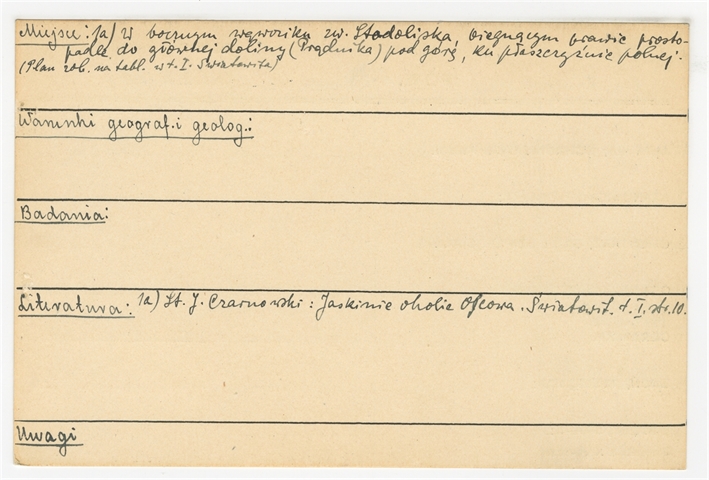 Miejsce: 1a) W bocznym wąwoziku zw. Stodoliska, biegnącym prawie prosto-
padle do głównej doliny (Prądnika) pod górę, ku płaszczyźnie polnej.
(Plan zob. na tabl. w t. I. Światowita)
Warunki geograf. i geolog.:
Badania:
Literatura: 1a) St. J. Czarnowski: Jaskinie okolic Ojcowa. Światowit. t. I, str. 10.
Uwagi